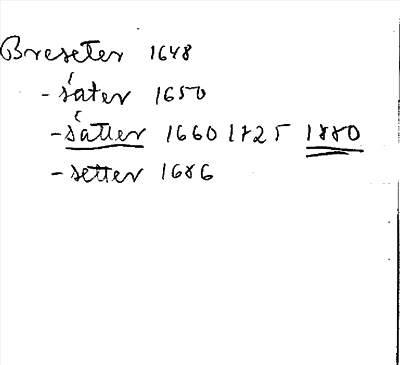 Breseter 1648
- såter 1650
- såtter 1660 1725 1880
- setter 1686